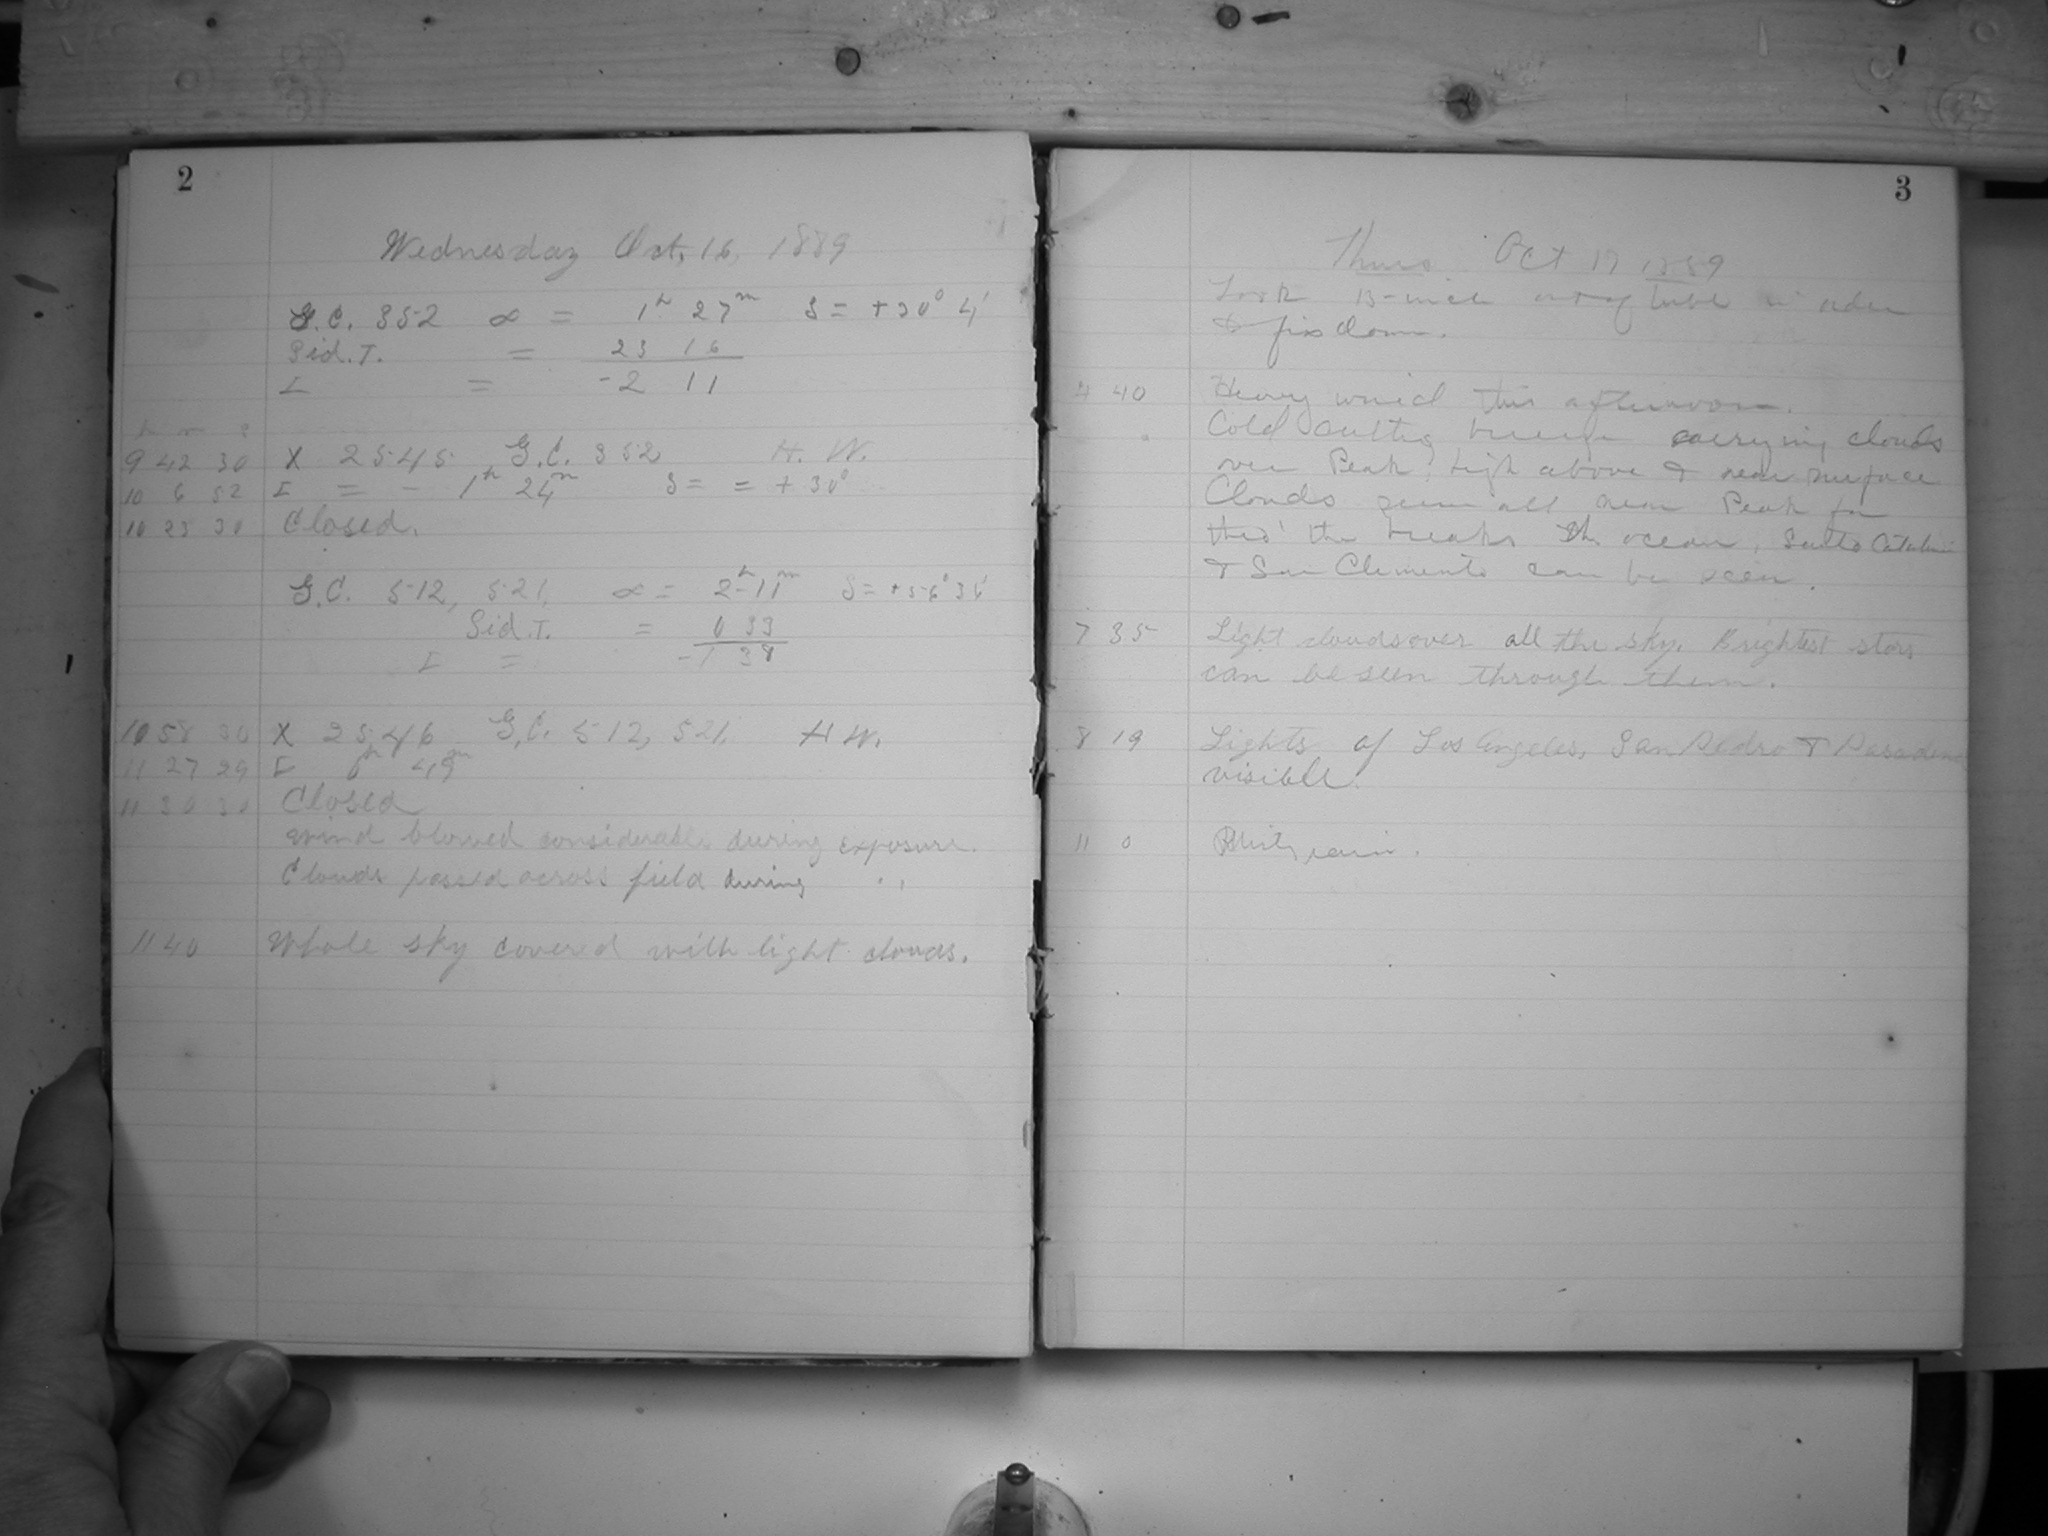 2
Wednesday Oct, 16, 1889
G.C. 352 α = 1h 27m δ = +30° 4'
Sid. T. = 23 16
I = -2 11
h m s
9 42 30 X 2545 G.C. 352 H. W.
10 6 52 I = - 1h 24m δ = = +30°
10 25 30 Closed.
G.C. 512, 521, α = 2h 11m δ = +56° 36'
Sid. T. = 0 33
I = -1 38
10 58 30 X 2546 G.C. 512, 521, H W.
11 27 29 I 0h 49m
11 30 30 Closed
Wind blowed considerable during exposure.
Clouds passed across field during " "
11 40 Whole sky covered with light clouds.
3
Thurs. Oct 17 1889
Took 13-inch out of tube in order
& fix down.
4 40 Heavy wind this afternoon.
Cold cutting breeze carrying clouds
over Peak, high above & near surface
Clouds seem all near Peak for
thro' the breaks the ocean, Santa Catalina
& San Clemente can be seen.
7 35 Light clouds over all the sky. Brightest stars
can be seen through them.
8 19 Lights of Los Angeles, San Pedro & Pasadena
visible.
11 0 rain.